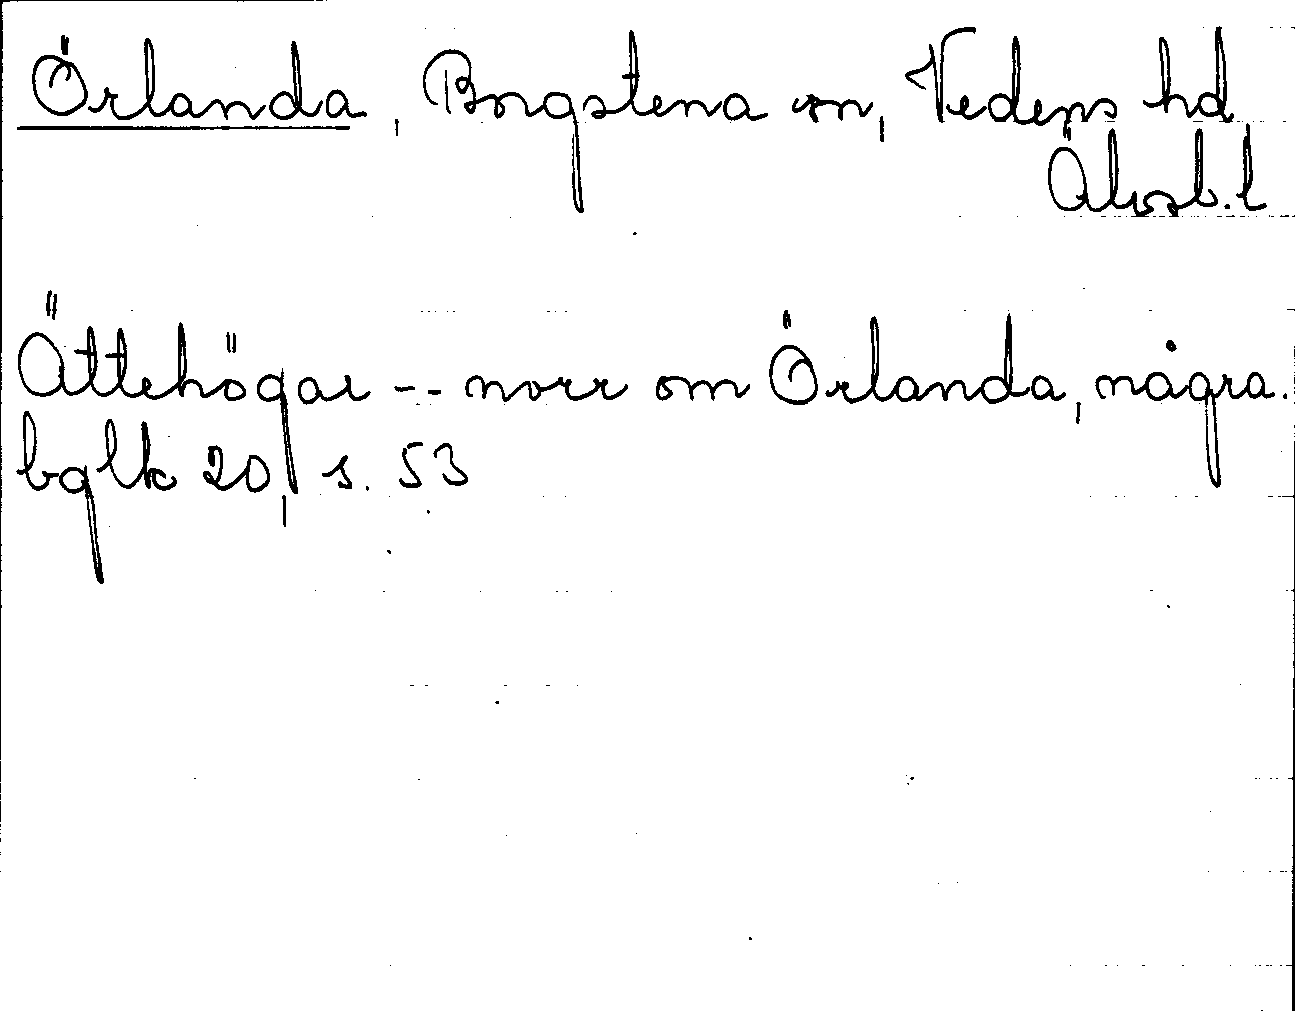 Örlanda, Borgstena sn, Vedens hd
Älvsb. l
Ättehögar -- norr om Örlanda, några.
bglk 20, s. 53